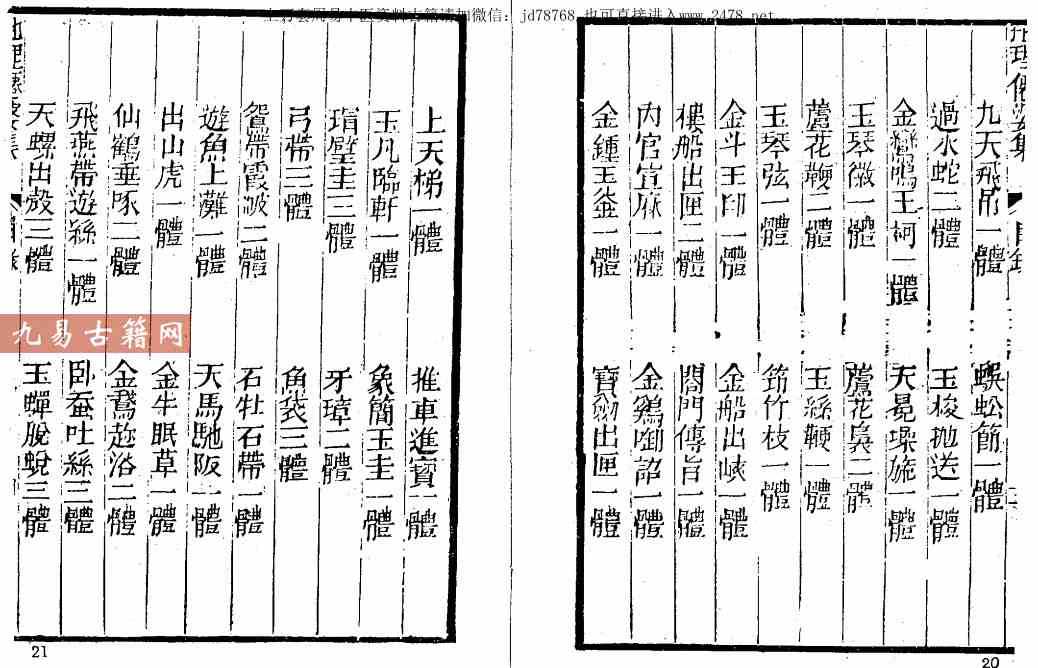 jd78768 也可直接进入www.2478.net
九天飛吊一體
蜈蚣節一體
過水蛇二體
玉梭抛送一體
金鸞鳴玉柯一體
天晃
施一體
玉琴徽一體
蘆花裊二體
蘆花鞭二體
玉絲鞭一體
玉琴弦一體
筇竹枝一體
金斗玉印一體
金船出峽一體
樓船出匣二體
閤門傳旨一體
內官宣麻一體
金鷄啣詔一體
金鍾玉釜一體
寶劍出匣一體
20
上天梯一體
推車進寶一體
玉几臨軒一體
象簡玉圭一體
璧圭三體
牙璋二體
弓帶三體
魚袋三體
鴛帶霞帔二體
石牡石帶一體
遊魚上灘一體
天馬馳阪一體
出山虎一體
金牛眠草一體
仙鶴垂啄二體
金鵞趁浴二體
飛燕帶遊絲一體
卧蚕吐絲三體
天螺出殻三體
玉蟬脫蛻三體
21
九易古籍网